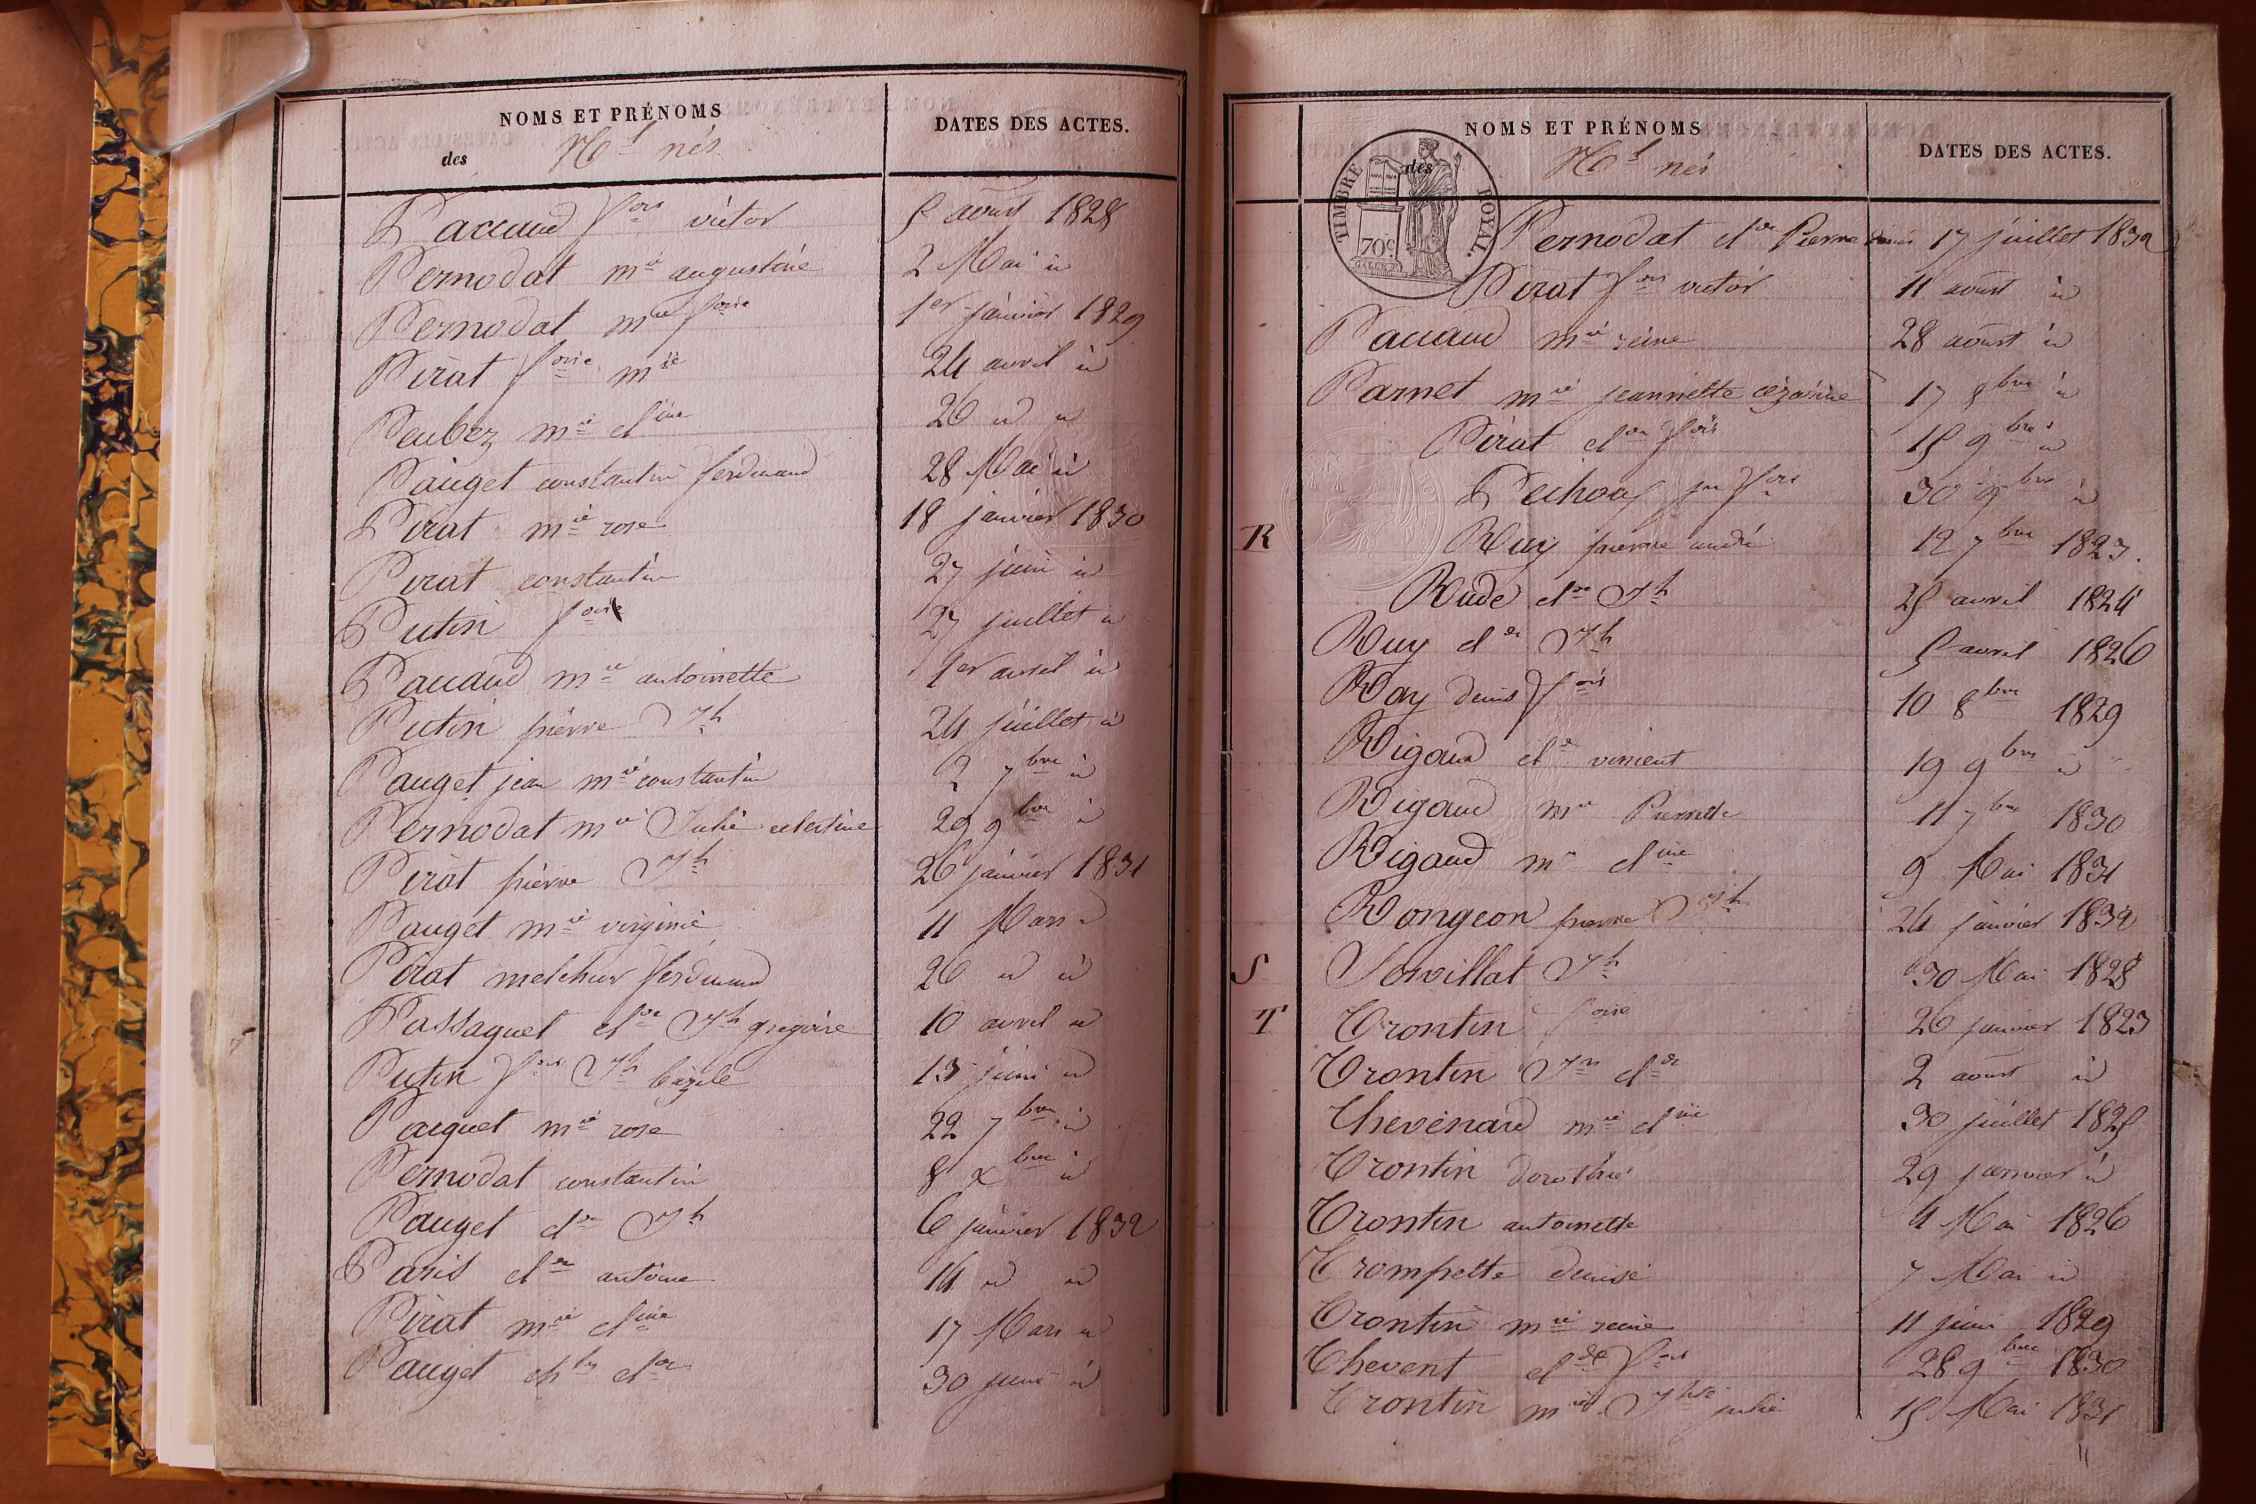 NOMS ET PRÉNOMS
des nés
DATES DES ACTES.
Paccaud fois victor 5 aoust 1828
Pernodat mie augustine 2 Mai id
Pernodat mie foise 1er janvier 1829
Pirat foise mie 24 avril id
Peubez mie cline 26 id id
Pauget constantin ferdinand 28 Mai id
Pirat mie rose 18 janvier 1830
Pirat constantin 27 juin id
Putin fois 27 juillet id
Paccaud mie antoinette 1er avril id
Putin pierre Jh 24 juillet id
Pauget jean mie constantin 2 7bre id
Pernodat mie Julie celestine 29 9bre id
Pirat pierre Jh 26 janvier 1831
Pauget mie virginie 11 Mars id
Pirat melchior ferdinand 26 id id
Passaquet clde Jh gregoire 10 avril id
Putin fois Jh bazile 13 juin id
Paquet mie rose 22 7bre id
Pernodat constantin 8 Xbre id
Pauget clde Jh 6 janvier 1832
Paris clde antoine 14 id id
Pirat mie cline 17 Mars id
Pauget chles clde 30 juin id
NOMS ET PRÉNOMS
des nés
DATES DES ACTES.
TIMBRE ROYAL.
70c.
Pernodat clde Pierre 17 juillet 1832
Pirat fois victor 11 aoust id
Paccaud mie reine 28 aoust id
Parnet mie jeannette cézarine 17 8bre id
Pirat clde fois 15 9bre id
Pechoux jn fois 30 9bre id
R Ruy pierre andré 12 7bre 1823.
Rude clde Jh 25 avril 1824
Ruy clde Jh 5 avril 1826
Ray denis fois 10 8bre 1829
Rigaud clde vincent 19 9bre id
Rigaud mie Pierrette 11 7bre 1830
Rigaud mie cline 9 Mai 1831
Rongeon pierre Jh 24 janvier 1832
S Sorvillat Jh 30 Mai 1828
T Trontin foise 26 janvier 1823
Trontin Jn clde 2 aoust id
Thevenard mie cline 30 juillet 1825
Trontin dorothée 29 janvier id
Trontin antoinette 4 Mai 1826
Trompette denise 7 Mai id
Trontin mie reine 11 juin 1829
Thevent clde fois 28 9bre 1830
Trontin mie Jhse julie 15 Mai 1831